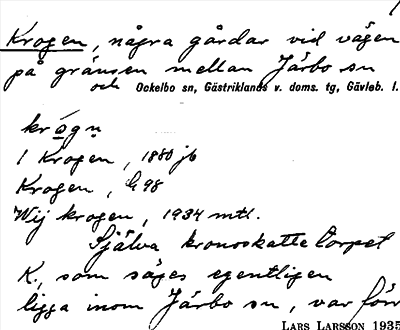 Krogen, några gårdar vid vägen
på gränsen mellan Järbo sn
och Ockelbo sn, Gästriklands v. doms. tg, Gävleb. l.
krógn
1 Krogen, 1880 jb
Krogen, G 98
Wij krogen, 1934 mtl.
Själva kronoskattetorpet
K., som säges egentligen
ligga inom Järbo sn, var förr
LARS LARSSON 1935